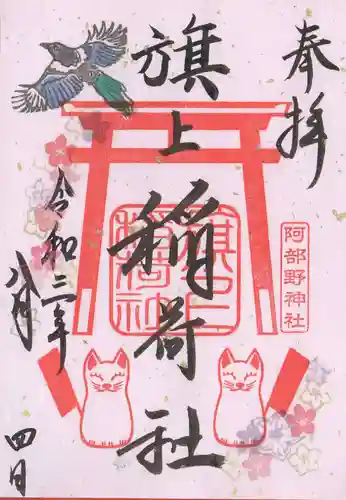 奉拝
旗上稲荷社
旗上
稲荷社
阿部野神社
令和三年
八月
四日